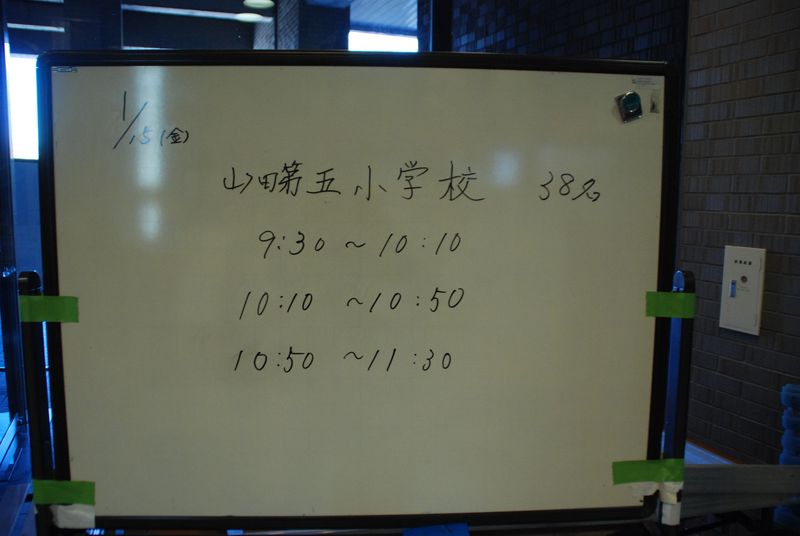 1/15(金)
山田第五小学校 38名
9:30 ～ 10:10
10:10 ～ 10:50
10:50 ～ 11:30